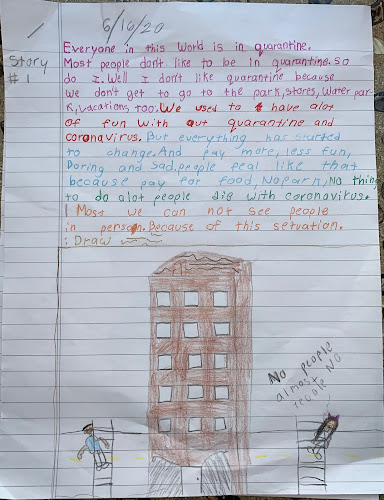 6/16/20
Story
# 1
Everyone in this World is in quarantine.
Most people don't like to be in quarantine. so
do I. Well I don't like quarantine because
we don't get to go to the park, stores, Water par-
k, vacations, too. We used to have alot
of fun With out quarantine and
coronavirus. But everything has started
to change. And pay more, less fun,
Boring and sad, people feal like that
because pay for food, No Parn, No thing
to do alot people die with coronavirus.
Most we can not see people
in person. Because of this setuation.
: Draw
No people
almost
No